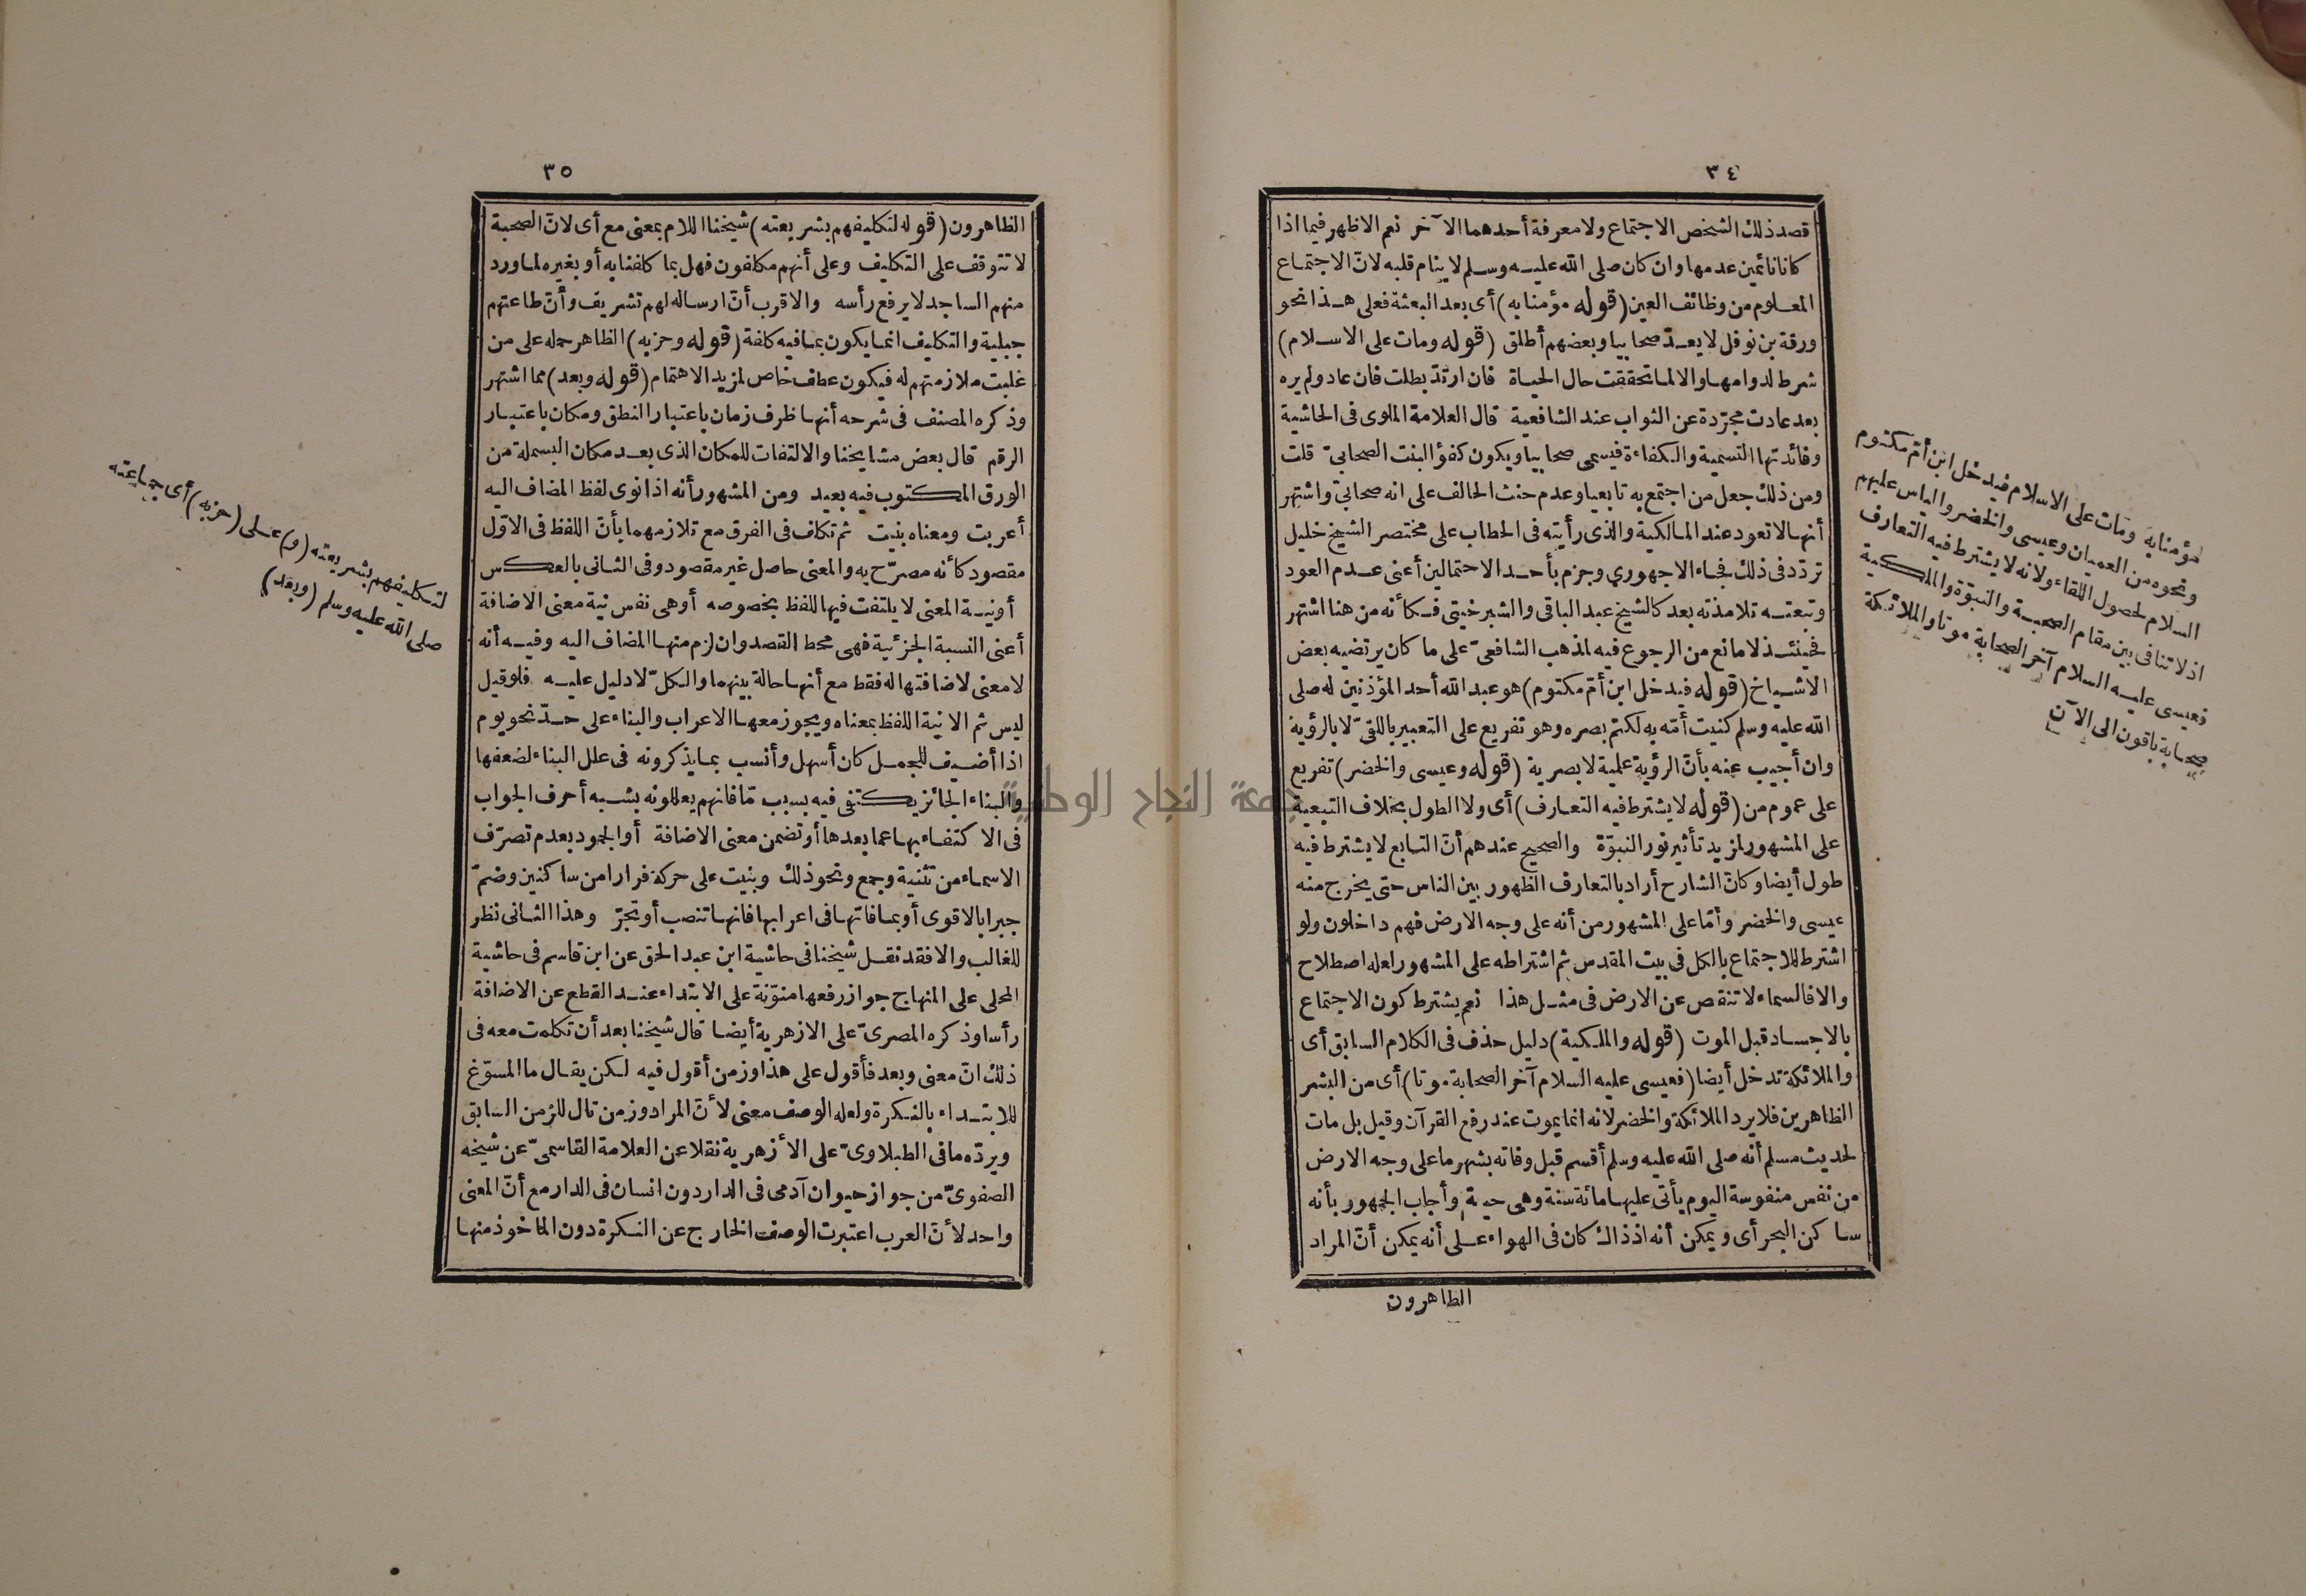 ٣٤
قصد ذلك الشخص الاجتماع ولا معرفة أحدهما الآخر نعم الاظهر فيما اذا
كانا نائمين عدمها وان كان صلى الله عليه وسلم لا ينام قلبه لان الاجتماع
المعلوم من وظائف العين (قوله مؤمنا به) أى بعد البعثة فعلى هذا نحو
ورقة بن نوفل لا يعدّ صحابيا وبعضهم أطلق (قوله ومات على الاسلام)
شرط لدوامها والا لما تحققت حال الحياة فان ارتدّ بطلت فان عاد ولم يره
بعد عادت مجرّدة عن الثواب عند الشافعية قال العلامة الملوى فى الحاشية
وفائدتها التسمية والكفاءة فيسمى صحابيا ويكون كفؤ البنت الصحابىّ قلت
ومن ذلك جعل من اجتمع به تابعيا وعدم حنث الحالف على انه صحابىّ واشتهر
أنها لا تعود عند المالكية والذى رأيته فى الحطاب على مختصر الشيخ خليل
تردّد فى ذلك فجاء الاجهوري وجزم بأحد الاحتمالين أعنى عدم العود
وتبعته تلامذته بعد كالشيخ عبد الباقى والشبرخيتى فكأنه من هنا اشتهر
فحينئذ لا مانع من الرجوع فيه لمذهب الشافعىّ على ما كان يرتضيه بعض
الاشياخ (قوله فيدخل ابن أمّ مكتوم) هو عبد الله أحد المؤذنين له صلى
الله عليه وسلم كنيت أمّه به لكتم بصره وهو تفريع على التعبير باللقىّ لا بالرؤية
وان أجيب عنه بأنّ الرؤية علمية لا بصرية (قوله وعيسى والخضر) تفريع
على عموم من (قوله لا يشترط فيه التعارف) أى ولا الطول بخلاف التبعية
على المشهور لمزيد تأثير نور النبوّة والصحيح عندهم أنّ التابع لا يشترط فيه
طول أيضا وكان الشارح أراد بالتعارف الظهور بين الناس حتى يخرج منه
عيسى والخضر وأمّا على المشهور من أنه على وجه الارض فهم داخلون ولو
اشترط للاجتماع بالكل فى بيت المقدس ثم اشتراطه على المشهور لعله اصطلاح
والا فالسماء لا تنقص عن الارض فى مثل هذا نعم يشترط كون الاجتماع
بالاجساد قبل الموت (قوله والملكية) دليل حذف فى الكلام السابق أى
والملائكة تدخل أيضا (فعيسى عليه السلام آخر الصحابة موتا) أى من البشر
الظاهرين فلا يرد الملائكة والخضر لانه انما يموت عند رفع القرآن وقيل بل مات
لحديث مسلم أنه صلى الله عليه وسلم أقسم قبل وفاته بشهر ما على وجه الارض
من نفس منفوسة اليوم يأتى عليها مائة سنة وهى حية وأجاب الجمهور بأنه
ساكن البحر أى ويمكن أنه اذ ذاك كان فى الهواء على أنه يمكن أنّ المراد
الظاهرون
مؤمنا به ومات على الاسلام فيدخل ابن أمّ مكتوم
ونحوه من العميان وعيسى والخضر والياس عليهم
السلام لحصول اللقاء ولانه لا يشترط فيه التعارف
اذ لا تنافى بين مقام الصحبة والنبوّة والملكية
فعيسى عليه السلام آخر الصحابة موتا والملائكة
صحابة باقون الى الآن
٣٥
الظاهرون (قوله لتكليفهم بشريعته) شيخنا اللام بمعنى مع أى لانّ الصحبة
لا تتوقف على التكليف وعلى أنهم مكلفون فهل بما كلفنا به أو بغيره لما ورد
منهم الساجد لا يرفع رأسه والاقرب أنّ ارساله لهم تشريف وأنّ طاعتهم
جبلية والتكليف انما يكون بما فيه كلفة (قوله وحزبه) الظاهر حمله على من
غلبت ملازمتهم له فيكون عطف خاص لمزيد الاهتمام (قوله وبعد) مما اشتهر
وذكره المصنف فى شرحه أنها ظرف زمان باعتبار النطق ومكان باعتبار
الرقم قال بعض مشايخنا والالتفات للمكان الذى بعد مكان البسملة من
الورق المكتوب فيه بعيد ومن المشهور أنه اذا نوى لفظ المضاف اليه
أعربت ومعناه بنيت ثم تكلف فى الفرق مع تلازمهما بأنّ اللفظ فى الاوّل
مقصود كأنه مصرّح به والمعنى حاصل غير مقصود وفى الثانى بالعكس
أونية المعنى لا يلتفت فيها للفظ بخصوصه أو هى نفس نية معنى الاضافة
أعنى النسبة الجزئية فهى محط القصد وان لزم منها المضاف اليه وفيه أنه
لا معنى لاضافتها له فقط مع أنها حالة بينهما والكلّ لا دليل عليه فلو قيل
ليس ثم الا نية اللفظ بمعناه ويجوز معها الاعراب والبناء على حدّ نحو يوم
اذا أضيف للجمل كان أسهل وأنسب بما يذكرونه فى علل البناء لضعفها
والبناء الجائز يكتفى فيه بسبب مّا فانهم يعللونه بشبه أحرف الجواب
فى الاكتفاء بها عما بعدها أو تضمن معنى الاضافة أو الجمود بعدم تصرّف
الاسماء من تثنية وجمع ونحو ذلك وبنيت على حركة فرارا من ساكنين وضمّ
جبرا بالاقوى أو بما فاتها فى اعرابها فانها تنصب أو تجرّ وهذا الثانى نظر
للغالب والا فقد نقل شيخنا فى حاشية ابن عبد الحق عن ابن قاسم فى حاشية
المحلى على المنهاج جواز رفعها منوّنة على الابتداء عند القطع عن الاضافة
رأسا وذكره المصرىّ على الازهرية أيضا قال شيخنا بعد أن تكلمت معه فى
ذلك انّ معنى وبعد فأقول على هذا وزمن أقول فيه لكن يقال ما المسوّغ
للابتداء بالنكرة ولعله الوصف معنى لأنّ المراد وزمن تال للزمن السابق
ويردّه ما فى الطبلاوىّ على الأزهرية نقلا عن العلامة القاسمىّ عن شيخه
الصفوىّ من جواز حيوان آدمى فى الدار دون انسان فى الدار مع أنّ المعنى
واحد لأنّ العرب اعتبرت الوصف الخارج عن النكرة دون المأخوذ منها
لتكليفهم بشريعته (و) على (حزبه) أى جماعته
صلى الله عليه وسلم (وبعد)
جامعة النجاح الوطنية